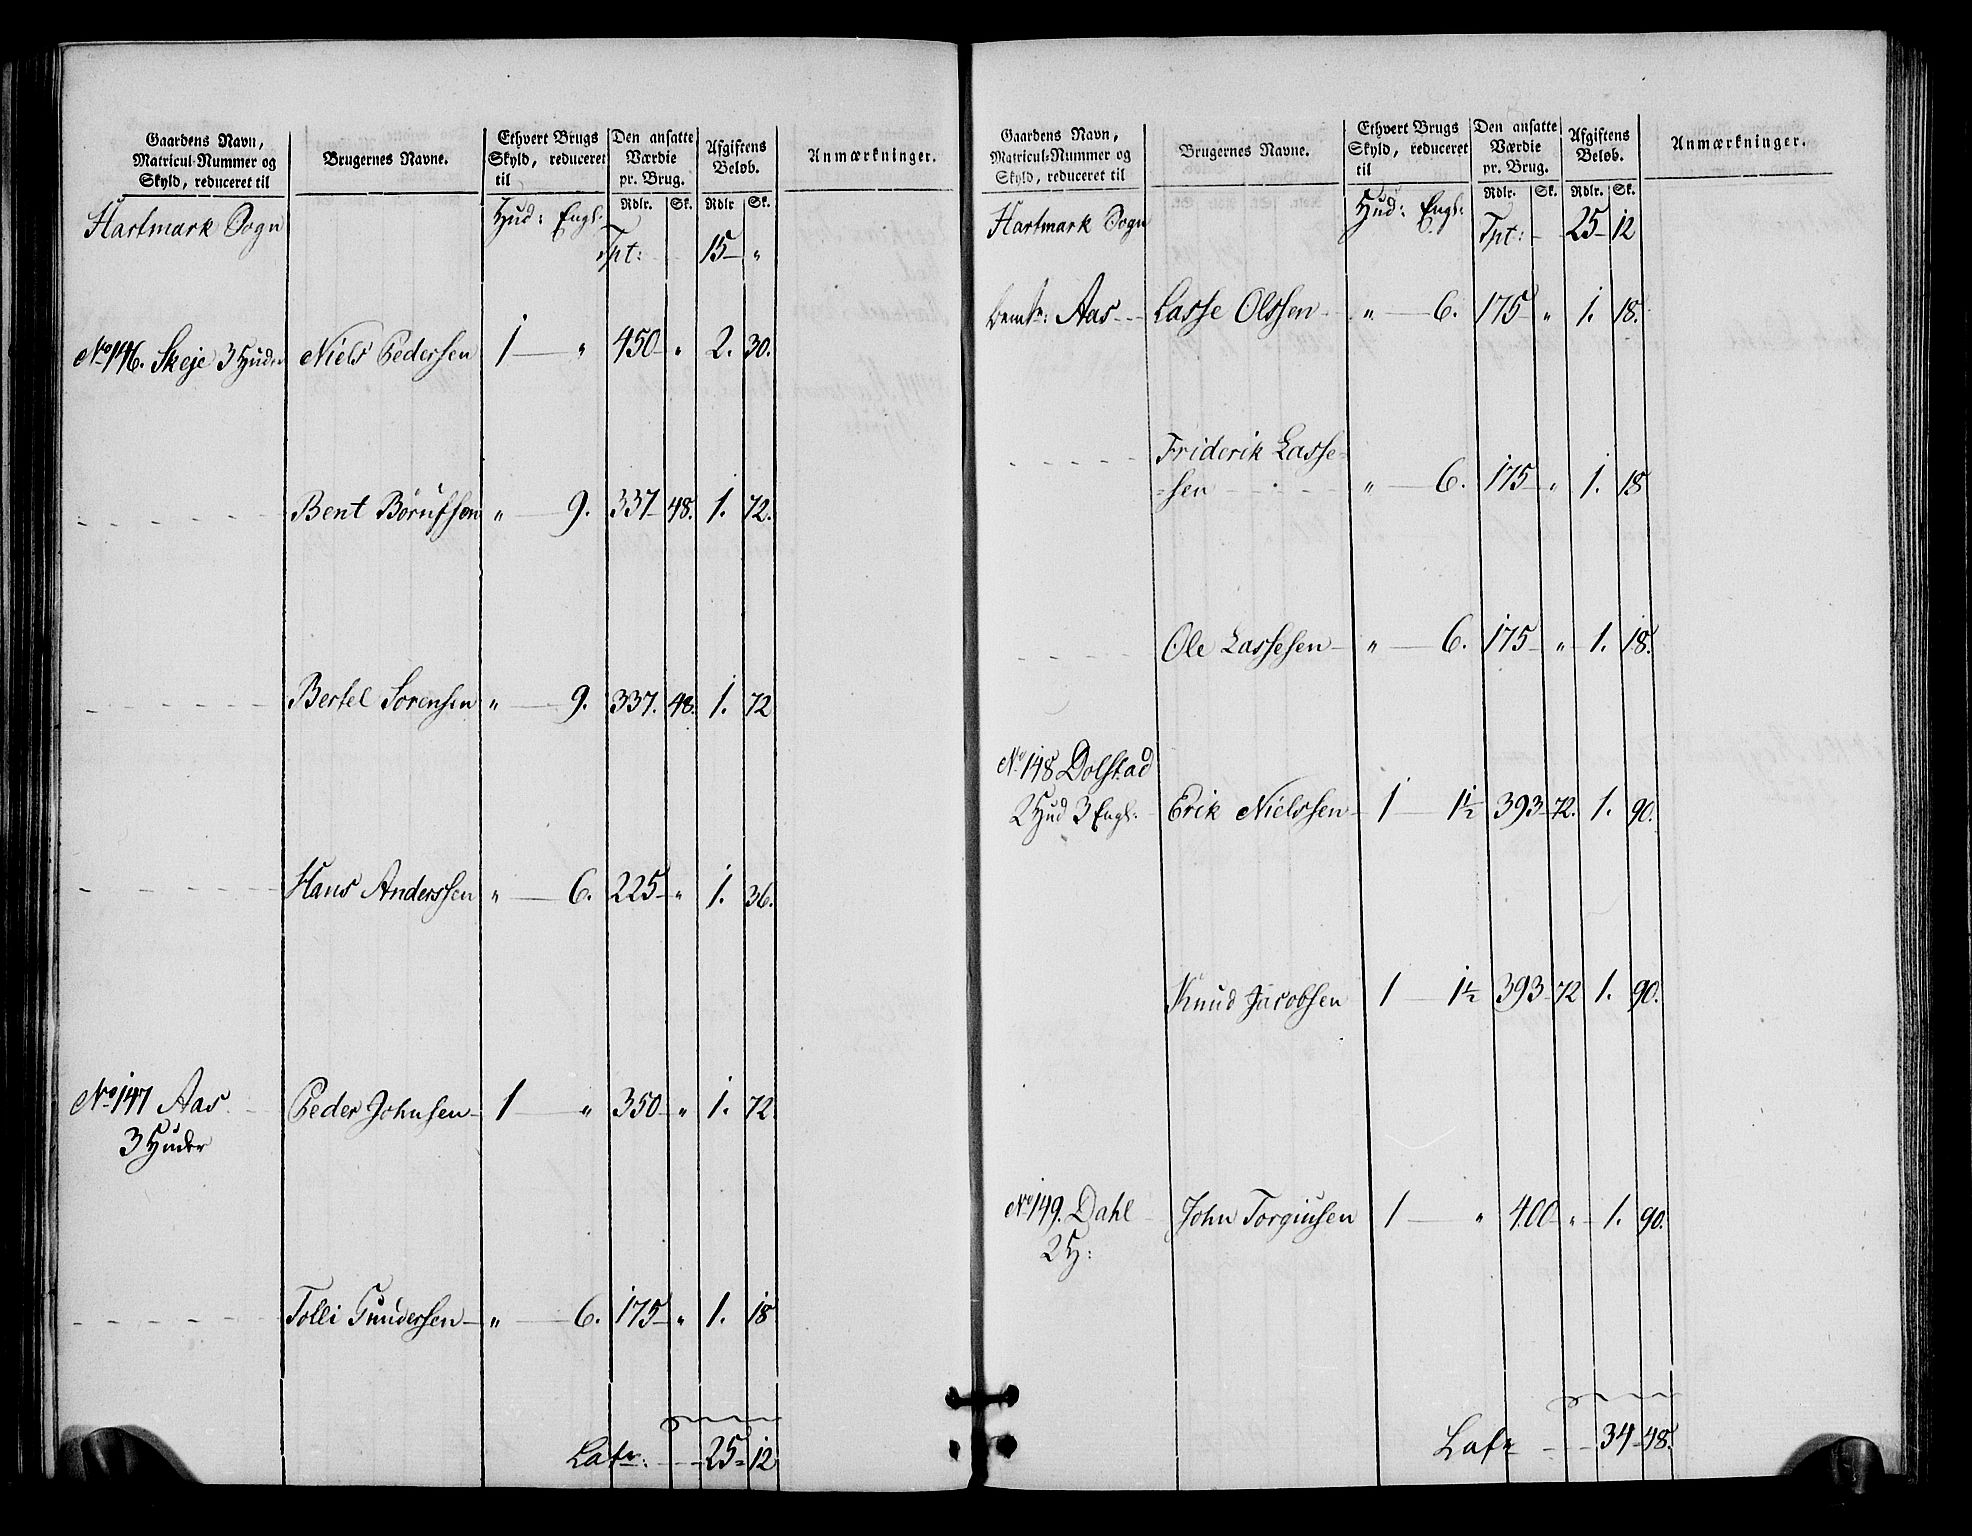 Gaardens Navn,
Matricul-Nummer og
Skyld, reduceret til
Brugernes Navne.
Ethvert Brugs
Skyld, reduceret
til
Den ansatte
Værdie
pr. Brug.
Afgiftens
Beløb.
Anmærkninger.
Rdlr. Sk. Rdlr Sk.
Hartmark Sogn Hud: Engl:
Tpt: 15 "
No 146. Skeje 3 Huder Niels Pedersen 1 " 450 " 2. 30.
Bent Børufsen " 9. 337 48. 1. 72.
Bertel Sorensen " 9. 337. 48. 1. 72
Hans Anderssen " 6. 225 " 1. 36.
No 147 Aas Peder Johnsen 1 " 350 " 1. 72.
3 Huder
Tolli Gundersen " 6. 175 " 1. 18
Latr: 25 12
Gaardens Navn,
Matricul-Nummer og
Skyld, reduceret til
Brugernes Navne.
Ethvert Brugs
Skyld, reduceret
til
Den ansatte
Værdie
pr. Brug.
Afgiftens
Beløb.
Anmærkninger.
Rdlr. Sk. Rdlr. Sk.
Hartmark Sogn Hud: Engl: Tpt: 25 12
Aas Lasse Olssen " 6. 175 " 1. 18.
Friderik Lasse=
=sen " 6. 175 " 1. 18
Ole Lassesen " 6. 175 " 1. 18.
No 148 Dolstad
2 Hud 3 Engl: Erik Nielssen 1 1½ 393 72. 1. 90.
Knud Jacobsen 1 1½ 393 72 1. 90.
No 149. Dahl John Torgiusen 1 " 400 " 1. 90.
2 H:
Latr 34 48.